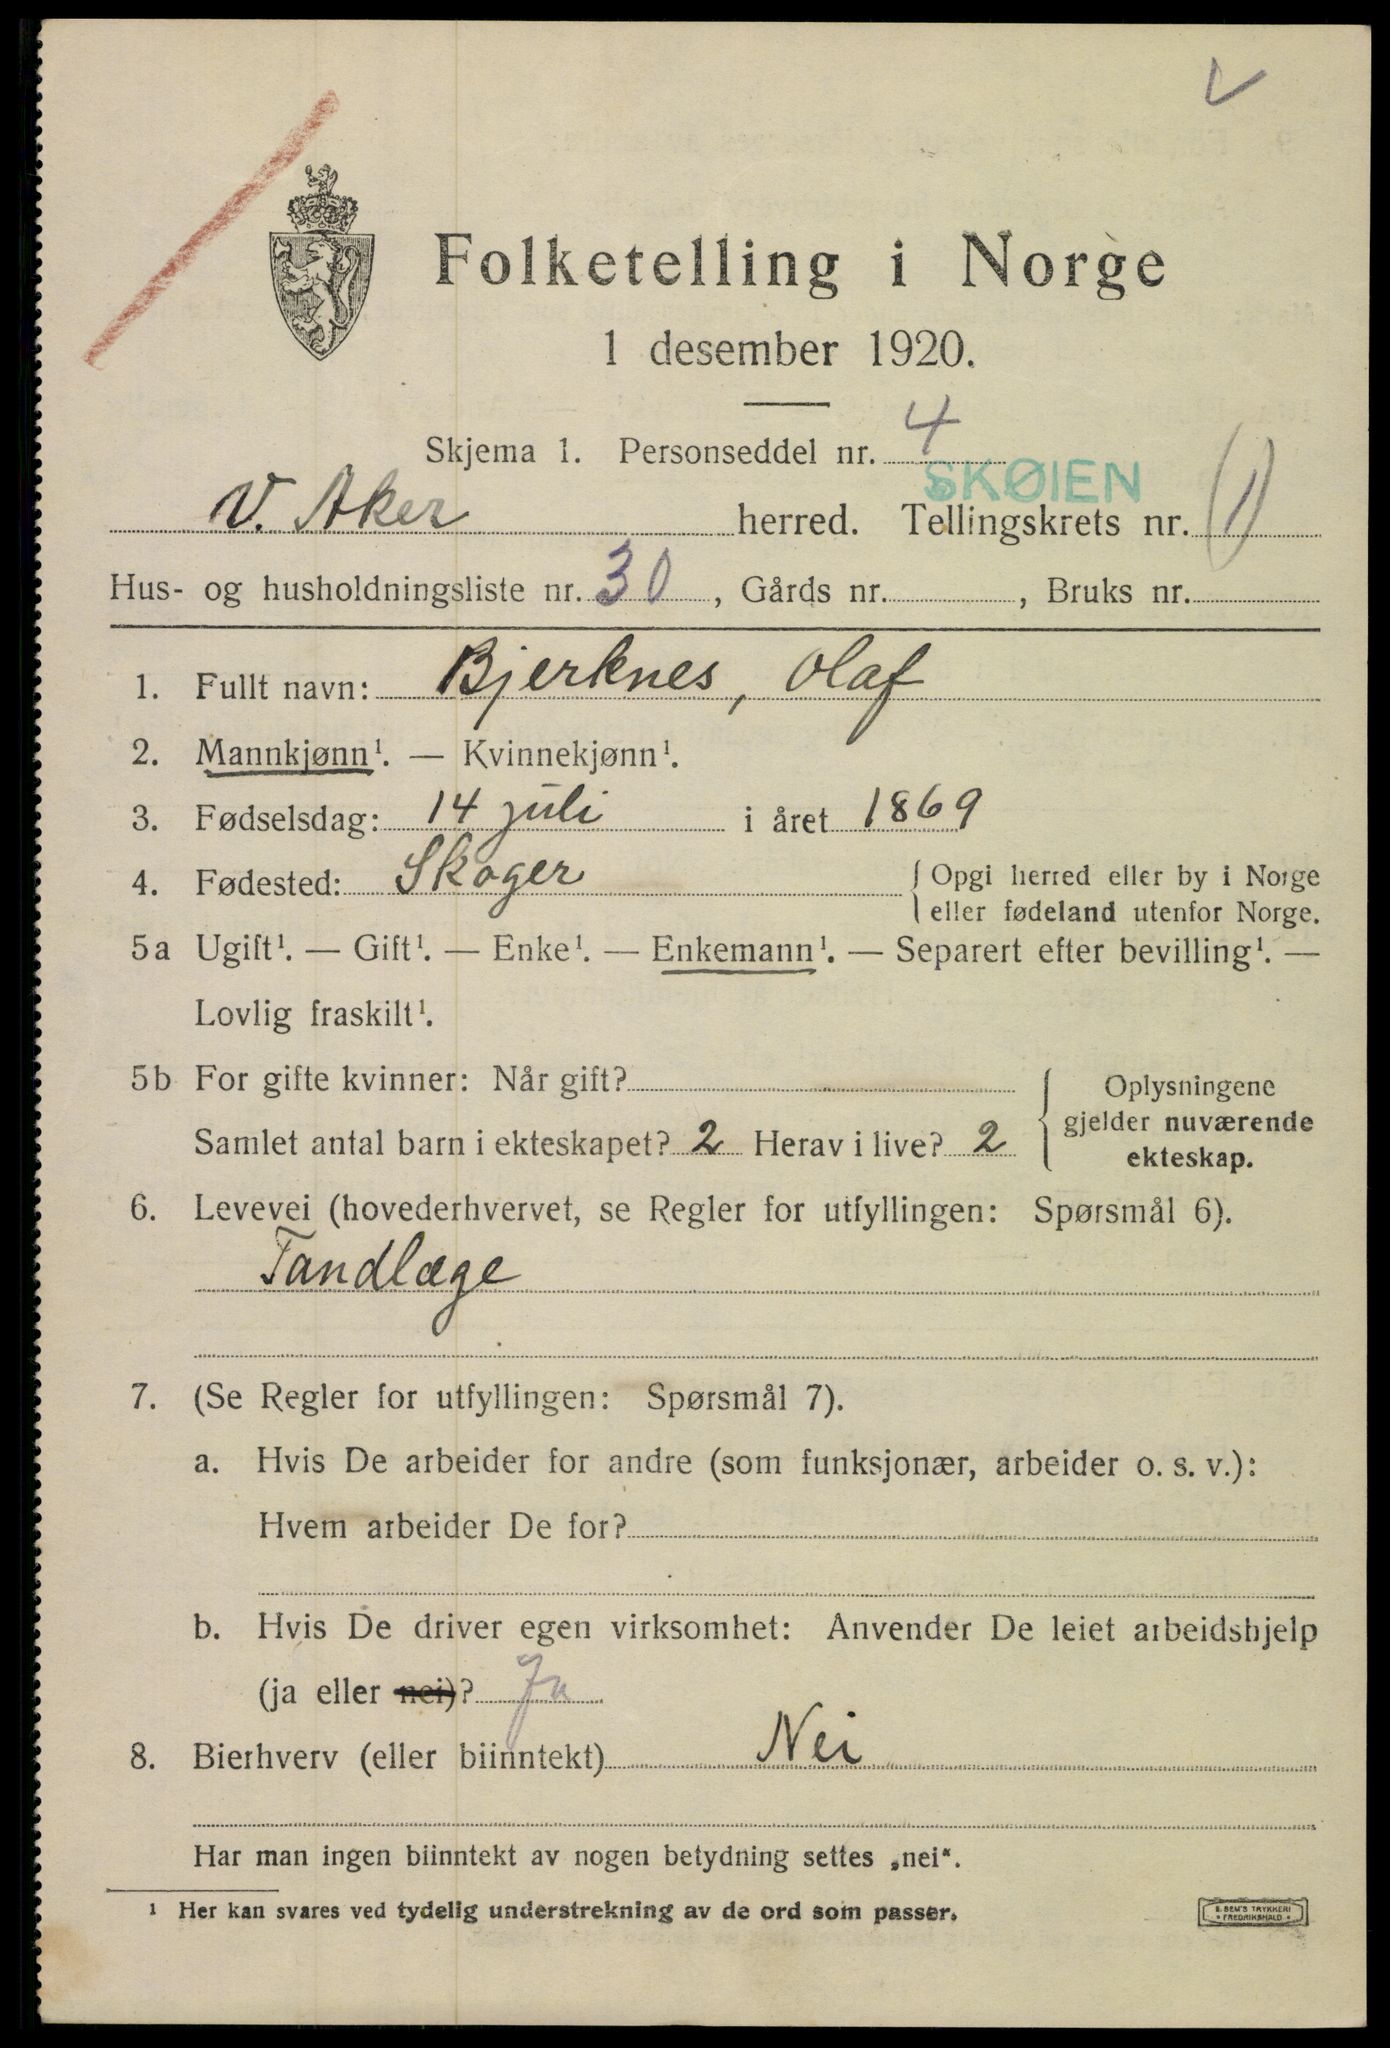 Folketelling i Norge
1 desember 1920.
Skjema 1. Personseddel nr. 4
SKØIEN
V. Aker herred. Tellingskrets nr. (1)
Hus- og husholdningsliste nr. 30, Gårds nr. , Bruks nr.
1. Fullt navn: Bjerknes, Olaf
2. Mannkjønn¹. — Kvinnekjønn¹.
3. Fødselsdag: 14 juli i året 1869
4. Fødested: Skoger { Opgi herred eller by i Norge
eller fødeland utenfor Norge.
5a Ugift¹. — Gift¹. — Enke¹. — Enkemann¹. — Separert efter bevilling¹. —
Lovlig fraskilt¹.
5b For gifte kvinner: Når gift?
Samlet antal barn i ekteskapet? 2 Herav i live? 2
Oplysningene
gjelder nuværende
ekteskap.
6. Levevei (hovederhvervet, se Regler for utfyllingen: Spørsmål 6).
Tandlæge
7. (Se Regler for utfyllingen: Spørsmål 7).
a. Hvis De arbeider for andre (som funksjonær, arbeider o. s. v.):
Hvem arbeider De for?
b. Hvis De driver egen virksomhet: Anvender De leiet arbeidshjelp
(ja eller nei)? Ja
8. Bierhverv (eller biinntekt) Nei
Har man ingen biinntekt av nogen betydning settes „nei“.
¹ Her kan svares ved tydelig understrekning av de ord som passer.
E. SEM'S TRYKKERI
• FREDRIKSHALD •